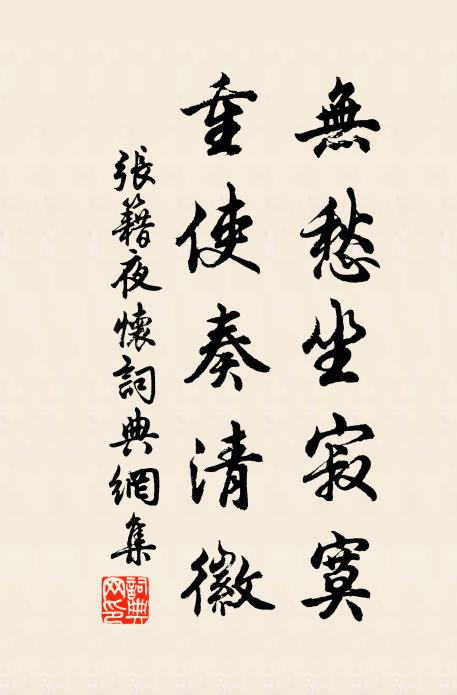 無愁坐寂寞
重使奏清徽
張籍夜懷詞典網集
詞典網印